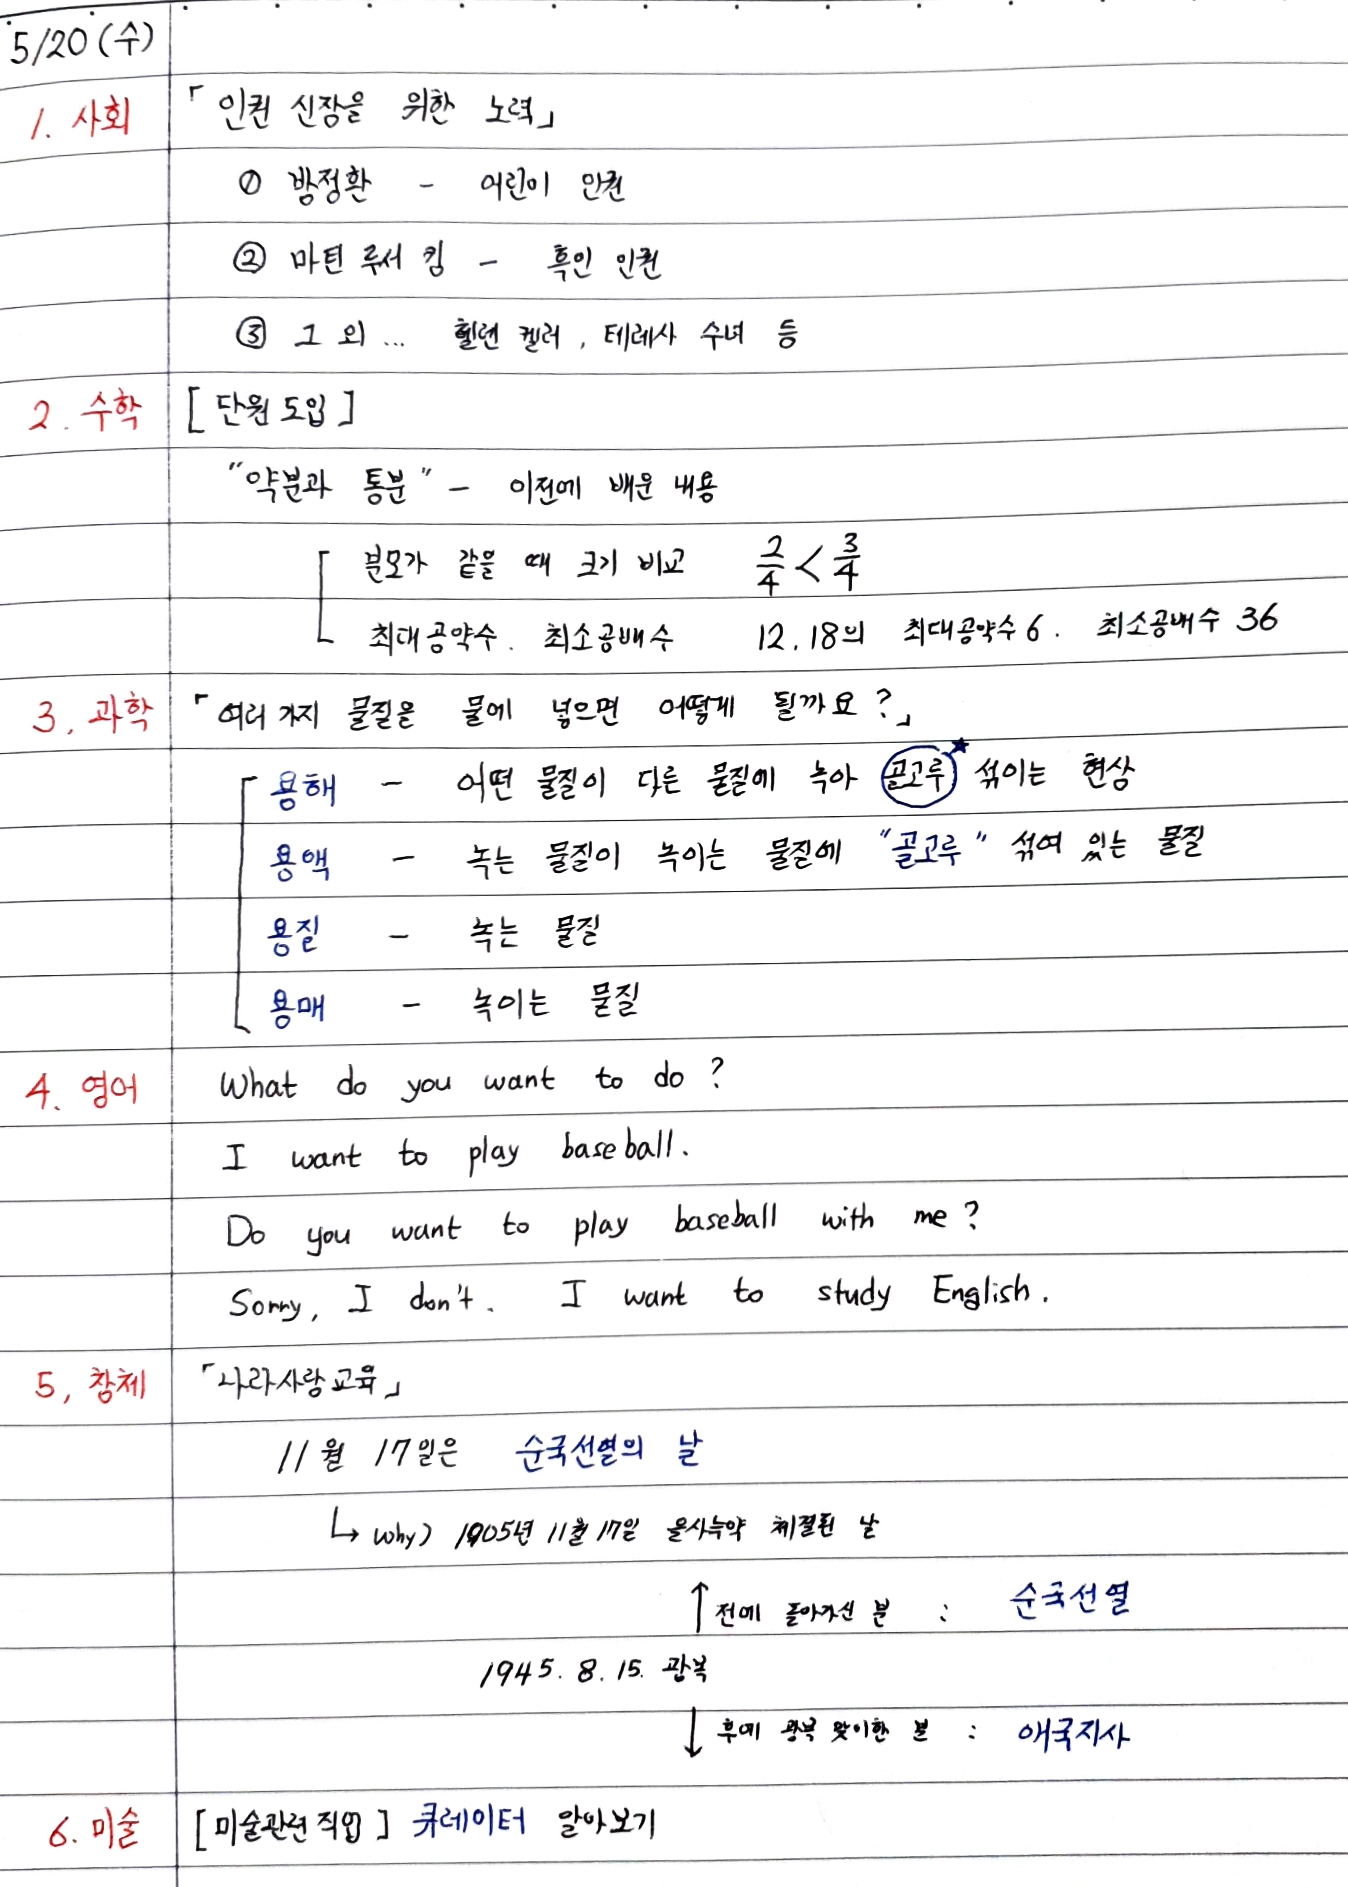 5/20 (수)
1. 사회 「인권 신장을 위한 노력」
① 방정환 - 어린이 인권
② 마틴 루서 킹 - 흑인 인권
③ 그 외 ... 헬렌 켈러, 테레사 수녀 등
2. 수학 [단원 도입]
"약분과 통분" - 이전에 배운 내용
분모가 같을 때 크기 비교 2/4 < 3/4
최대공약수. 최소공배수 12, 18의 최대공약수 6. 최소공배수 36
3. 과학 「여러 가지 물질을 물에 넣으면 어떻게 될까요?」
용해 - 어떤 물질이 다른 물질에 녹아 골고루★ 섞이는 현상
용액 - 녹는 물질이 녹이는 물질에 "골고루" 섞여 있는 물질
용질 - 녹는 물질
용매 - 녹이는 물질
4. 영어 What do you want to do?
I want to play baseball.
Do you want to play baseball with me?
Sorry, I don't. I want to study English.
5. 창체 「나라사랑교육」
11월 17일은 순국선열의 날
↳ why) 1905년 11월 17일 을사늑약 체결된 날
↑ 전에 돌아가신 분 : 순국선열
1945. 8. 15. 광복
↓ 후에 광복 맞이한 분 : 애국지사
6. 미술 [미술관련 직업] 큐레이터 알아보기